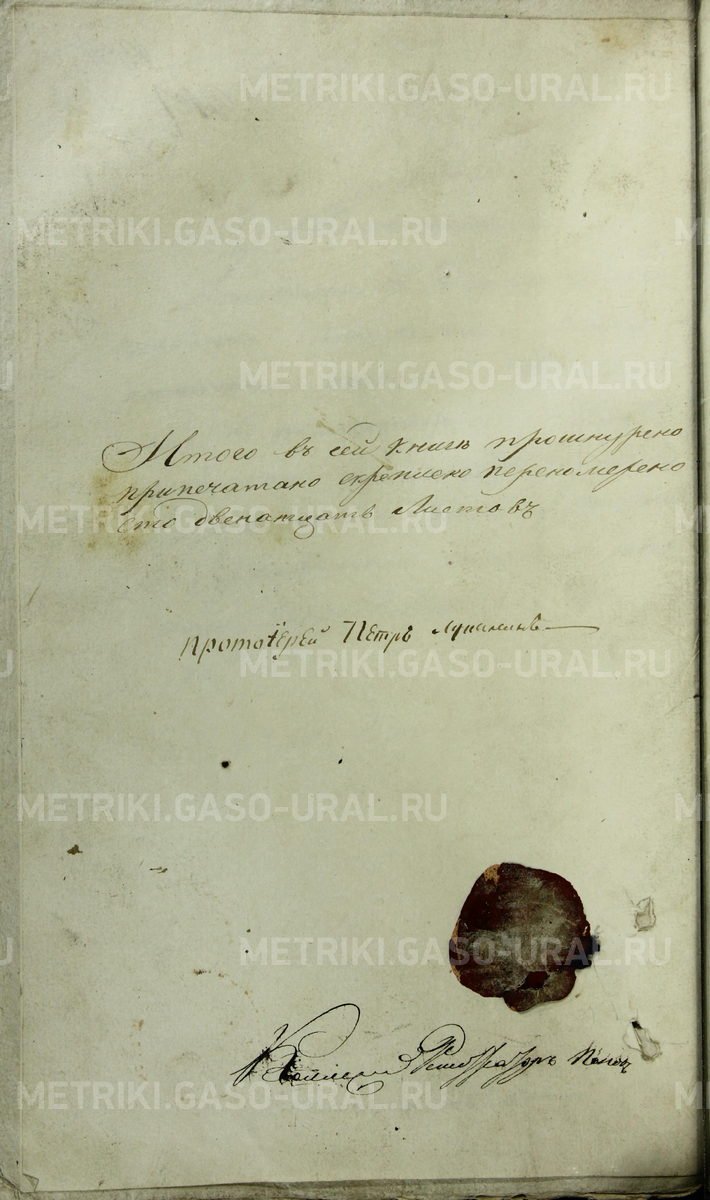 METRIKI.GASO-URAL.RU
METRIKI.GASO-URAL.RU
METRIKI.GASO-URAL.RU
Итого въ сей книгѣ прошнурено
припечатано скреплено переномерено
сто двенатцать Листовъ
METRIKI.GASO-URAL.RU
протоїерей Петръ
METRIKI.GASO-URAL.RU
METRIKI.GASO-URAL.RU
METRIKI.GASO-URAL.RU
METRIKI.GASO-URAL.RU